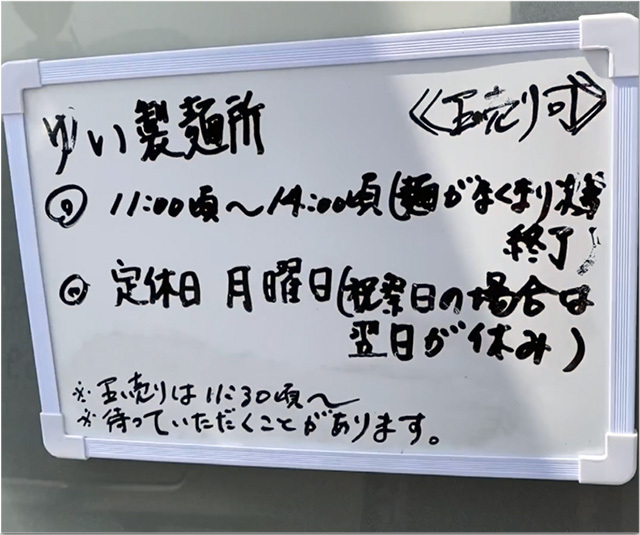 ゆい製麺所 《玉売り可》
① 11:00頃〜14:00頃(麺がなくなり次第
終了)
② 定休日 月曜日(祝祭日の場合は
翌日が休み)
※玉売りは11:30頃〜
※待っていただくことがあります。